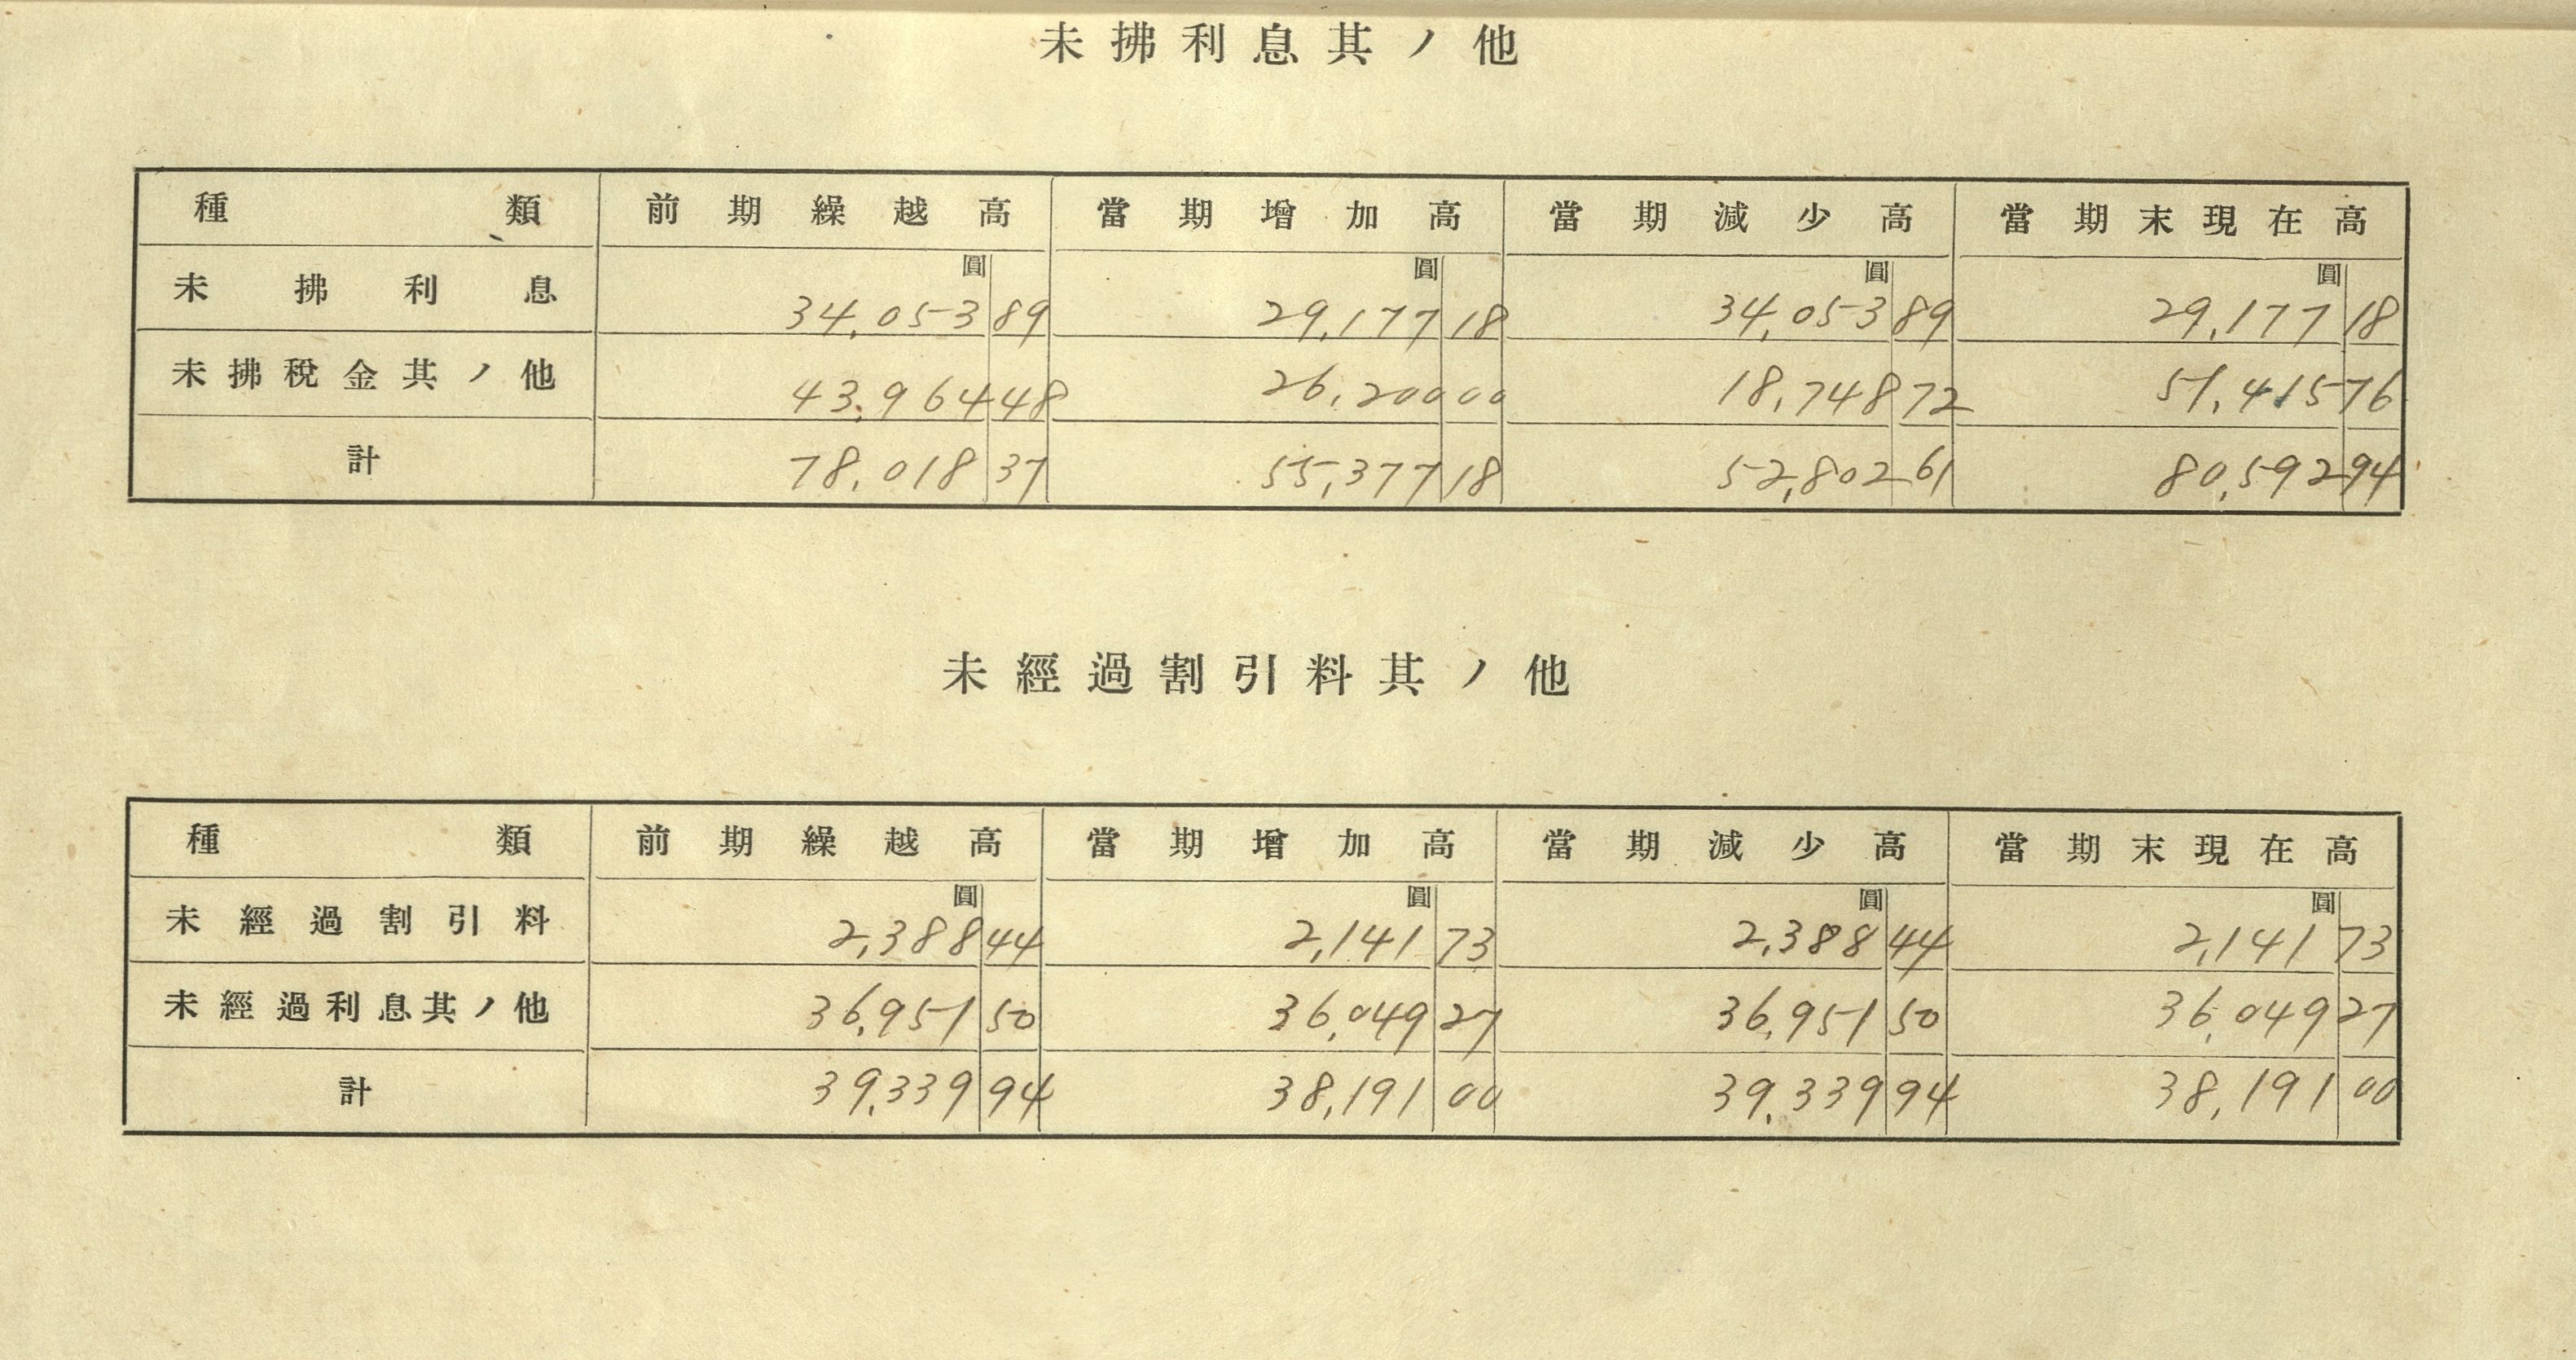 未拂利息其ノ他
種類 前期繰越高 當期增加高 當期減少高 當期末現在高
圓 圓 圓 圓
未拂利息 34,053 89 29,177 18 34,053 89 29,177 18
未拂稅金其ノ他 43,964 48 26,200 00 18,748 72 51,415 76
計 78,018 37 55,377 18 52,802 61 80,592 94
未經過割引料其ノ他
種類 前期繰越高 當期增加高 當期減少高 當期末現在高
圓 圓 圓 圓
未經過割引料 2,388 44 2,141 73 2,388 44 2,141 73
未經過利息其ノ他 36,951 50 36,049 27 36,951 50 36,049 27
計 39,339 94 38,191 00 39,339 94 38,191 00